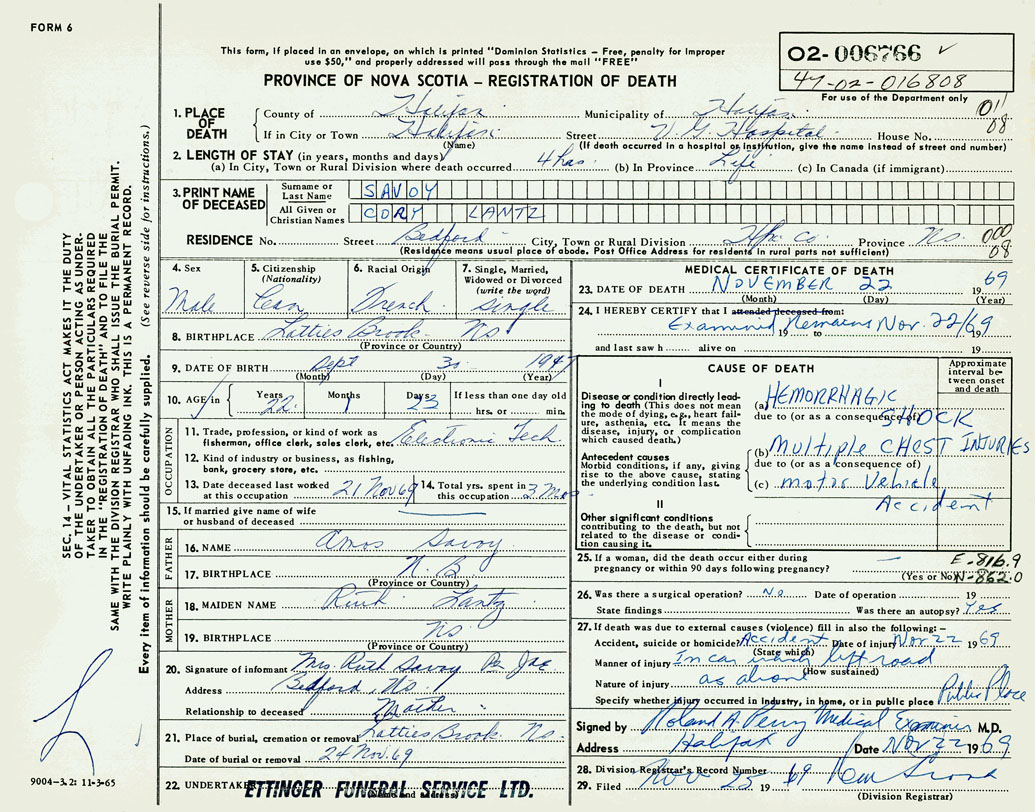 FORM 6
This form, if placed in an envelope, on which is printed "Dominion Statistics – Free, penalty for improper
use $50," and properly addressed will pass through the mail "FREE"
PROVINCE OF NOVA SCOTIA – REGISTRATION OF DEATH
02-006766
47-02-016808
For use of the Department only
01
08
SEC. 14 – VITAL STATISTICS ACT MAKES IT THE DUTY
OF THE UNDERTAKER OR PERSON ACTING AS UNDER-
TAKER TO OBTAIN ALL THE PARTICULARS REQUIRED
IN THE "REGISTRATION OF DEATH" AND TO FILE THE
SAME WITH THE DIVISION REGISTRAR WHO SHALL ISSUE THE BURIAL PERMIT.
WRITE PLAINLY WITH UNFADING INK. THIS IS A PERMANENT RECORD.
Every item of information should be carefully supplied. (See reverse side for instructions.)
1. PLACE OF DEATH
County of Halifax Municipality of Halifax
If in City or Town Halifax Street V. G. Hospital House No.
(Name) (If death occurred in a hospital or institution, give the name instead of street and number)
2. LENGTH OF STAY (in years, months and days)
(a) In City, Town or Rural Division where death occurred 4 hrs. (b) In Province Life (c) In Canada (if immigrant)
3. PRINT NAME OF DECEASED
Surname or Last Name SAVOY
All Given or Christian Names CORY LANTZ
RESIDENCE No. Street Bedford City, Town or Rural Division Hfx. Co. Province N.S. 000
08
(Residence means usual place of abode. Post Office Address for residents in rural parts not sufficient)
4. Sex
Male
5. Citizenship (Nationality)
Can
6. Racial Origin
French
7. Single, Married, Widowed or Divorced (write the word)
Single
8. BIRTHPLACE Latties Brook NS
(Province or Country)
9. DATE OF BIRTH Sept 30 1947
(Month) (Day) (Year)
10. AGE in Years 22 Months 1 Days 23 If less than one day old hrs. or min.
OCCUPATION
11. Trade, profession, or kind of work as fisherman, office clerk, sales clerk, etc. Electronic Tech
12. Kind of industry or business, as fishing, bank, grocery store, etc.
13. Date deceased last worked at this occupation 21 Nov 69
14. Total yrs. spent in this occupation 3 Mos
15. If married give name of wife or husband of deceased
FATHER
16. NAME Amos Savoy
17. BIRTHPLACE N.B.
(Province or Country)
MOTHER
18. MAIDEN NAME Ruth Lantz
19. BIRTHPLACE NS
(Province or Country)
20. Signature of informant Mrs. Ruth Savoy Per
Address Bedford, NS.
Relationship to deceased Mother
21. Place of burial, cremation or removal Latties Brook NS.
Date of burial or removal 24 Nov. 69
22. UNDERTAKER ETTINGER FUNERAL SERVICE LTD.
(Name and address)
9004-3.2: 11-3-65
MEDICAL CERTIFICATE OF DEATH
23. DATE OF DEATH NOVEMBER 22 1969
(Month) (Day) (Year)
24. I HEREBY CERTIFY that I attended deceased from:
Examined Remains Nov. 22/69
19 to 19
and last saw h alive on 19
CAUSE OF DEATH
Approximate interval between onset and death
I
Disease or condition directly leading to death (This does not mean the mode of dying, e.g., heart failure, asthenia, etc. It means the disease, injury, or complication which caused death.)
(a) HEMORRHAGIC SHOCK
due to (or as a consequence of)
Antecedent causes
Morbid conditions, if any, giving rise to the above cause, stating the underlying condition last.
(b) Multiple CHEST INJURIES
due to (or as a consequence of)
(c) Motor Vehicle Accident
II
Other significant conditions
contributing to the death, but not related to the disease or condition causing it.
25. If a woman, did the death occur either during pregnancy or within 90 days following pregnancy? —
(Yes or No)
E-816.9
N-862.0
26. Was there a surgical operation? No Date of operation 19
State findings Was there an autopsy? Yes
27. If death was due to external causes (violence) fill in also the following:–
Accident, suicide or homicide? Accident Date of injury Nov 22 1969
(State which)
Manner of injury In car which left road
(How sustained)
Nature of injury as above
Specify whether injury occurred in Industry, in home, or in public place Public Place
Signed by Roland A. Perry Medical Examiner M.D.
Address Halifax Date Nov 22 1969
28. Division Registrar's Record Number
29. Filed Nov. 25 1969
(Division Registrar)